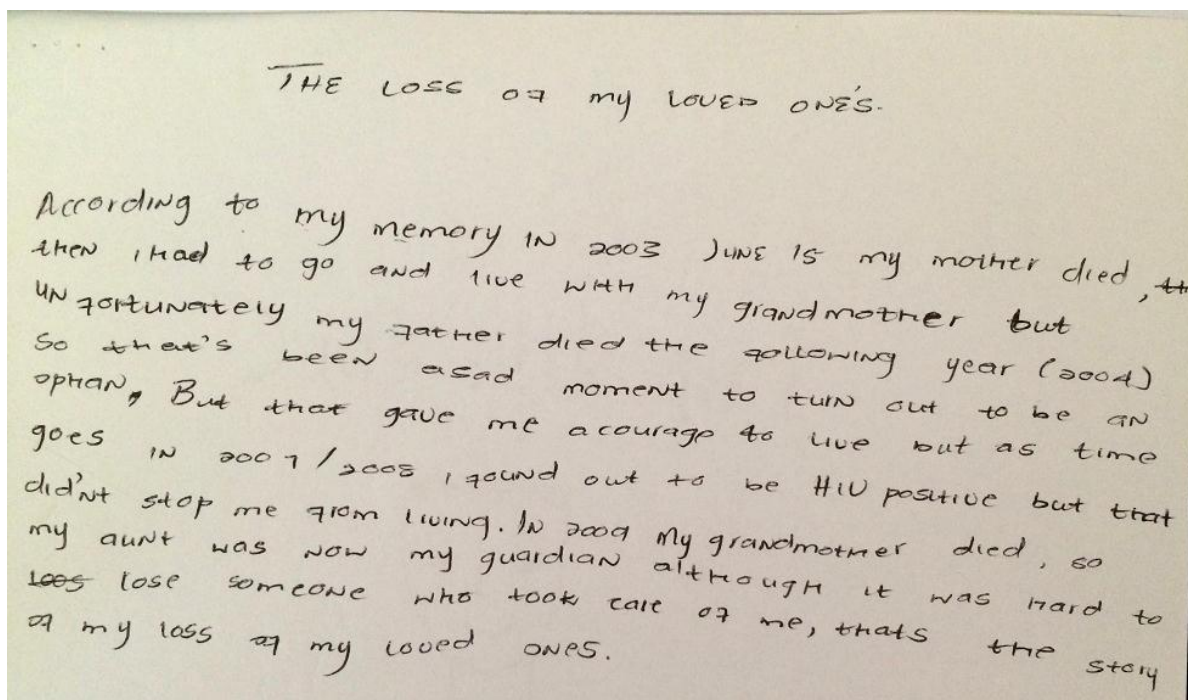 THE LOSS OF my LOVED ONE'S.
According to my memory IN 2003 JUNE 15 my mother died,
then i had to go and live with my grandmother but
unfortunately my father died the following year (2004)
So that's been a sad moment to turn out to be an
ophan, But that gave me a courage to live but as time
goes in 2007/2008 i found out to be HIV positive but that
did'nt stop me from living. In 2009 My grandmother died, so
my aunt was now my guardian although it was hard to
lose someone who took care of me, thats the story
of my loss of my loved ones.